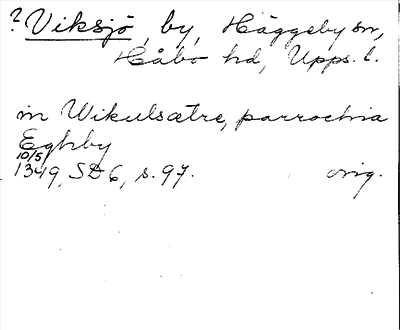 ? Viksjö, by, Häggeby sn,
Håbo hd, Upps. l.
in Wikulsætre, parrochia
Eghby
10/5
1349, SD 6, s. 97. orig.